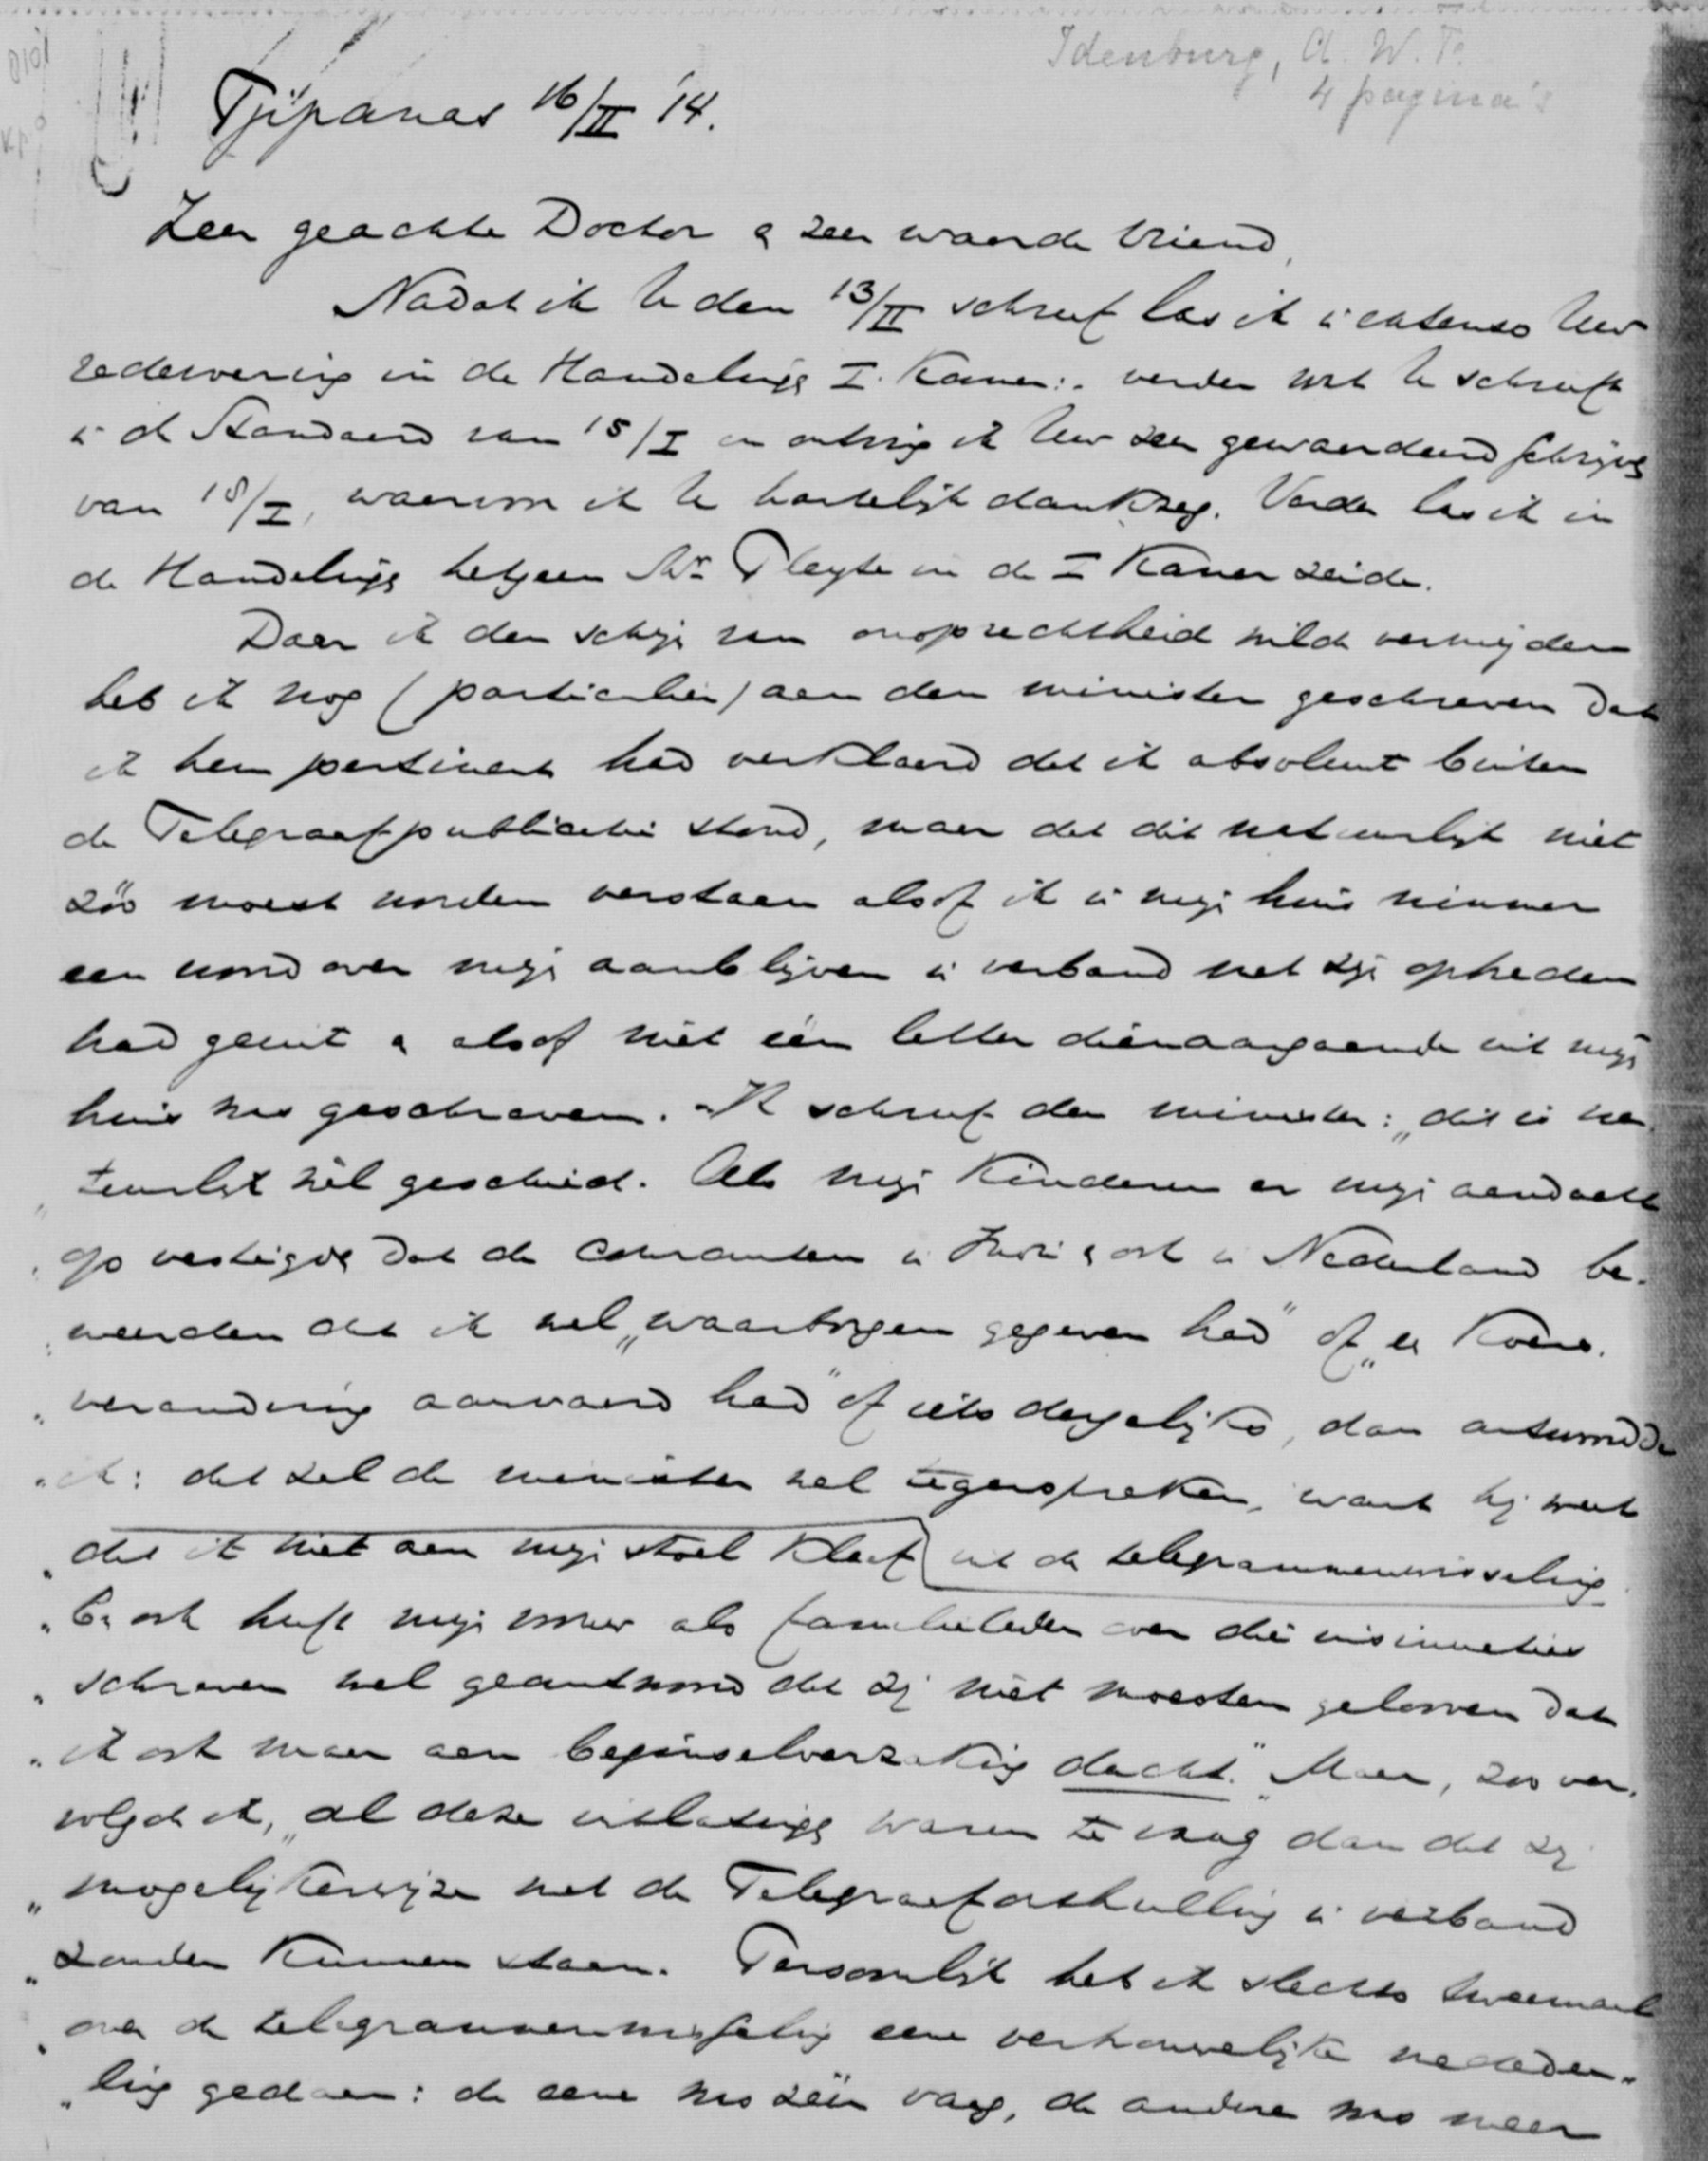 Idenburg, A. W. F.
4 pagina's
Tjipanas 16/II '14.
Zeer geachte Doctor & zeer waarde Vriend,
Nadat ik U den 13/II schreef las ik in extenso Uw
redevoering in de Handelings I. Kamer: verder wat U schreeft
in de Standaard van 15/I en ontving ik Uw zeer gewaardeerd schrijvs
van 18/I, waarvoor ik U hartelijk dankzeg. Verder las ik in
de Handelings hetgeen Mr. Pleyte in de I Kamer zeide.
Daar ik den schijn van onoprechtheid wilde vermijden
heb ik nog (particulier) aan den minister geschreven dat
ik hem pertinent had verklaard dat ik absoluut buiten
de Telegraafpublicatie stond, maar dat dit natuurlijk niet
zóó moest worden verstaan alsof ik in mijn huis nimmer
een woord over mijn aanblijven in verband met zijn optreden
had geuit & alsof niet één letter dienaangaande uit mijn
huis was geschreven. Ik schreef den minister: „dit is na-
„tuurlijk wèl geschied. Als mijn kinderen er mijn aandacht
„op vestigde dat de couranten in Indië & ook in Nederland be-
„weerden dat ik wel „waarborgen gegeven had" of „er koers-
„verandering aanvaard had" of iets dergelijks, dan antwoordde
„ik: dat zal de minister wel tegenspreken, want hij weet
„dat ik niet aan mijn stoel kleef uit de telegrammenwisseling.
„En ook heeft mijn vrouw als familieleden over die insinuaties
„schreven wel geantwoord dat zij niet moesten gelooven dat
„ik ook maar aan beginselverzaking dacht." Maar, zoo ver-
volgde ik, „al deze uitlatings waren te vaag dan dat zij
„mogelijkerwijze met de Telegraafonthulling in verband
„zouden kunnen staan. Persoonlijk heb ik slechts tweemaal
„over de telegrammenwisseling eene vertrouwelijke mededee-
„ling gedaan: de eene was zéér vaag, de andere was meer